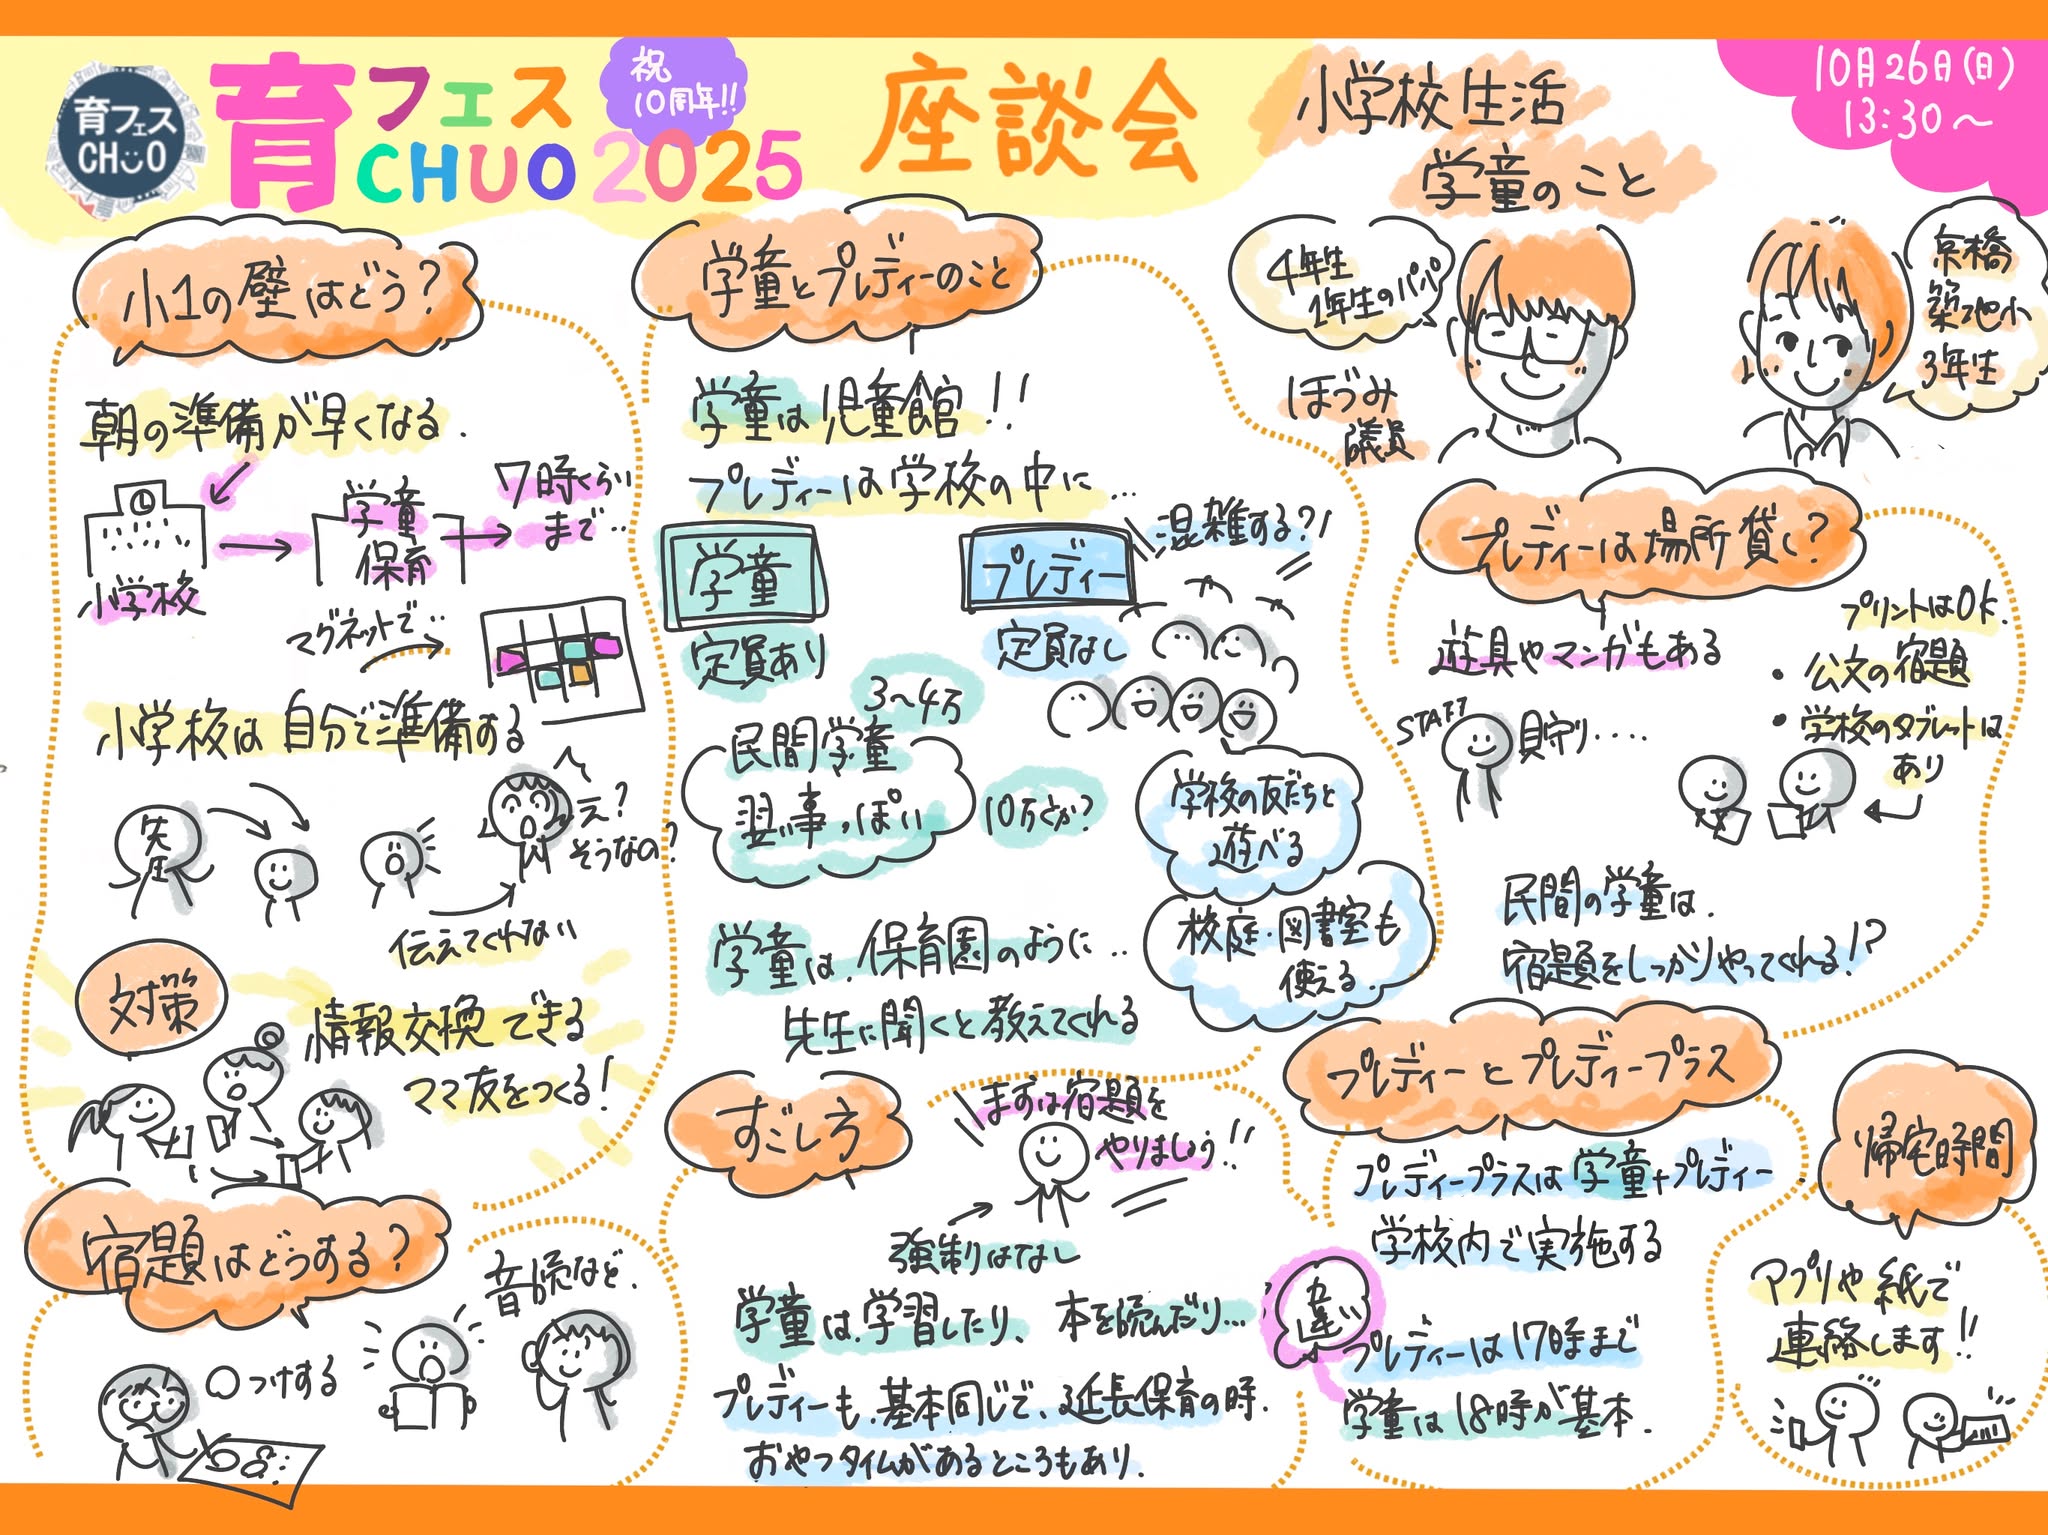 育フェス
CHUO
育フェス
CHUO 2025
祝
10周年!!
座談会
小学校生活
学童のこと
10月26日(日)
13:30〜
小1の壁はどう?
朝の準備が早くなる.
小学校
学童
保育
7時くらい
まで..
マグネットで..
小学校は自分で準備する
先生
え?
そうなの?
伝えてくれない
対策
情報交換できる
ママ友をつくる!
宿題はどうする?
○つけする
音読など.
学童とプレディーのこと
学童は児童館!!
プレディーは学校の中に...
学童
定員あり
プレディー
定員なし
混雑する?!
3〜4万
民間学童
習い事っぽい
10万くらい?
学校の友だちと
遊べる
校庭・図書室も
使える.
学童は.保育園のように...
先生に聞くと教えてくれる
すごし方
まずは宿題を
やりましょう!!
強制はなし
学童は.学習したり、本を読んだり...
プレディーも.基本同じで、延長保育の時.
おやつタイムがあるところもあり.
4年生
1年生のパパ
ほづみ
議員
京橋
築地小
3年生
プレディーは場所貸し?
遊具やマンガもある
プリントはOK.
・公文の宿題
・学校のタブレットは
あり
STAFF
見守り....
民間の学童は.
宿題をしっかりやってくれる!?
プレディーとプレディープラス
プレディープラスは学童+プレディー
学校内で実施する
違い
プレディーは17時まで
学童は18時が基本.
帰宅時間
アプリや紙で
連絡します!!